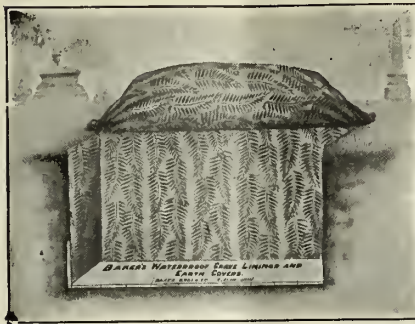 BAKER'S WATERPROOF GRAVE LININGS AND
EARTH COVERS.